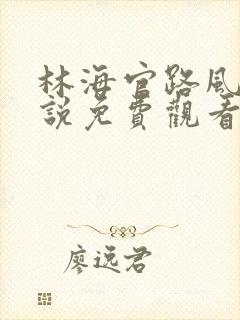 林海官路風
說免費觀看
廖远君